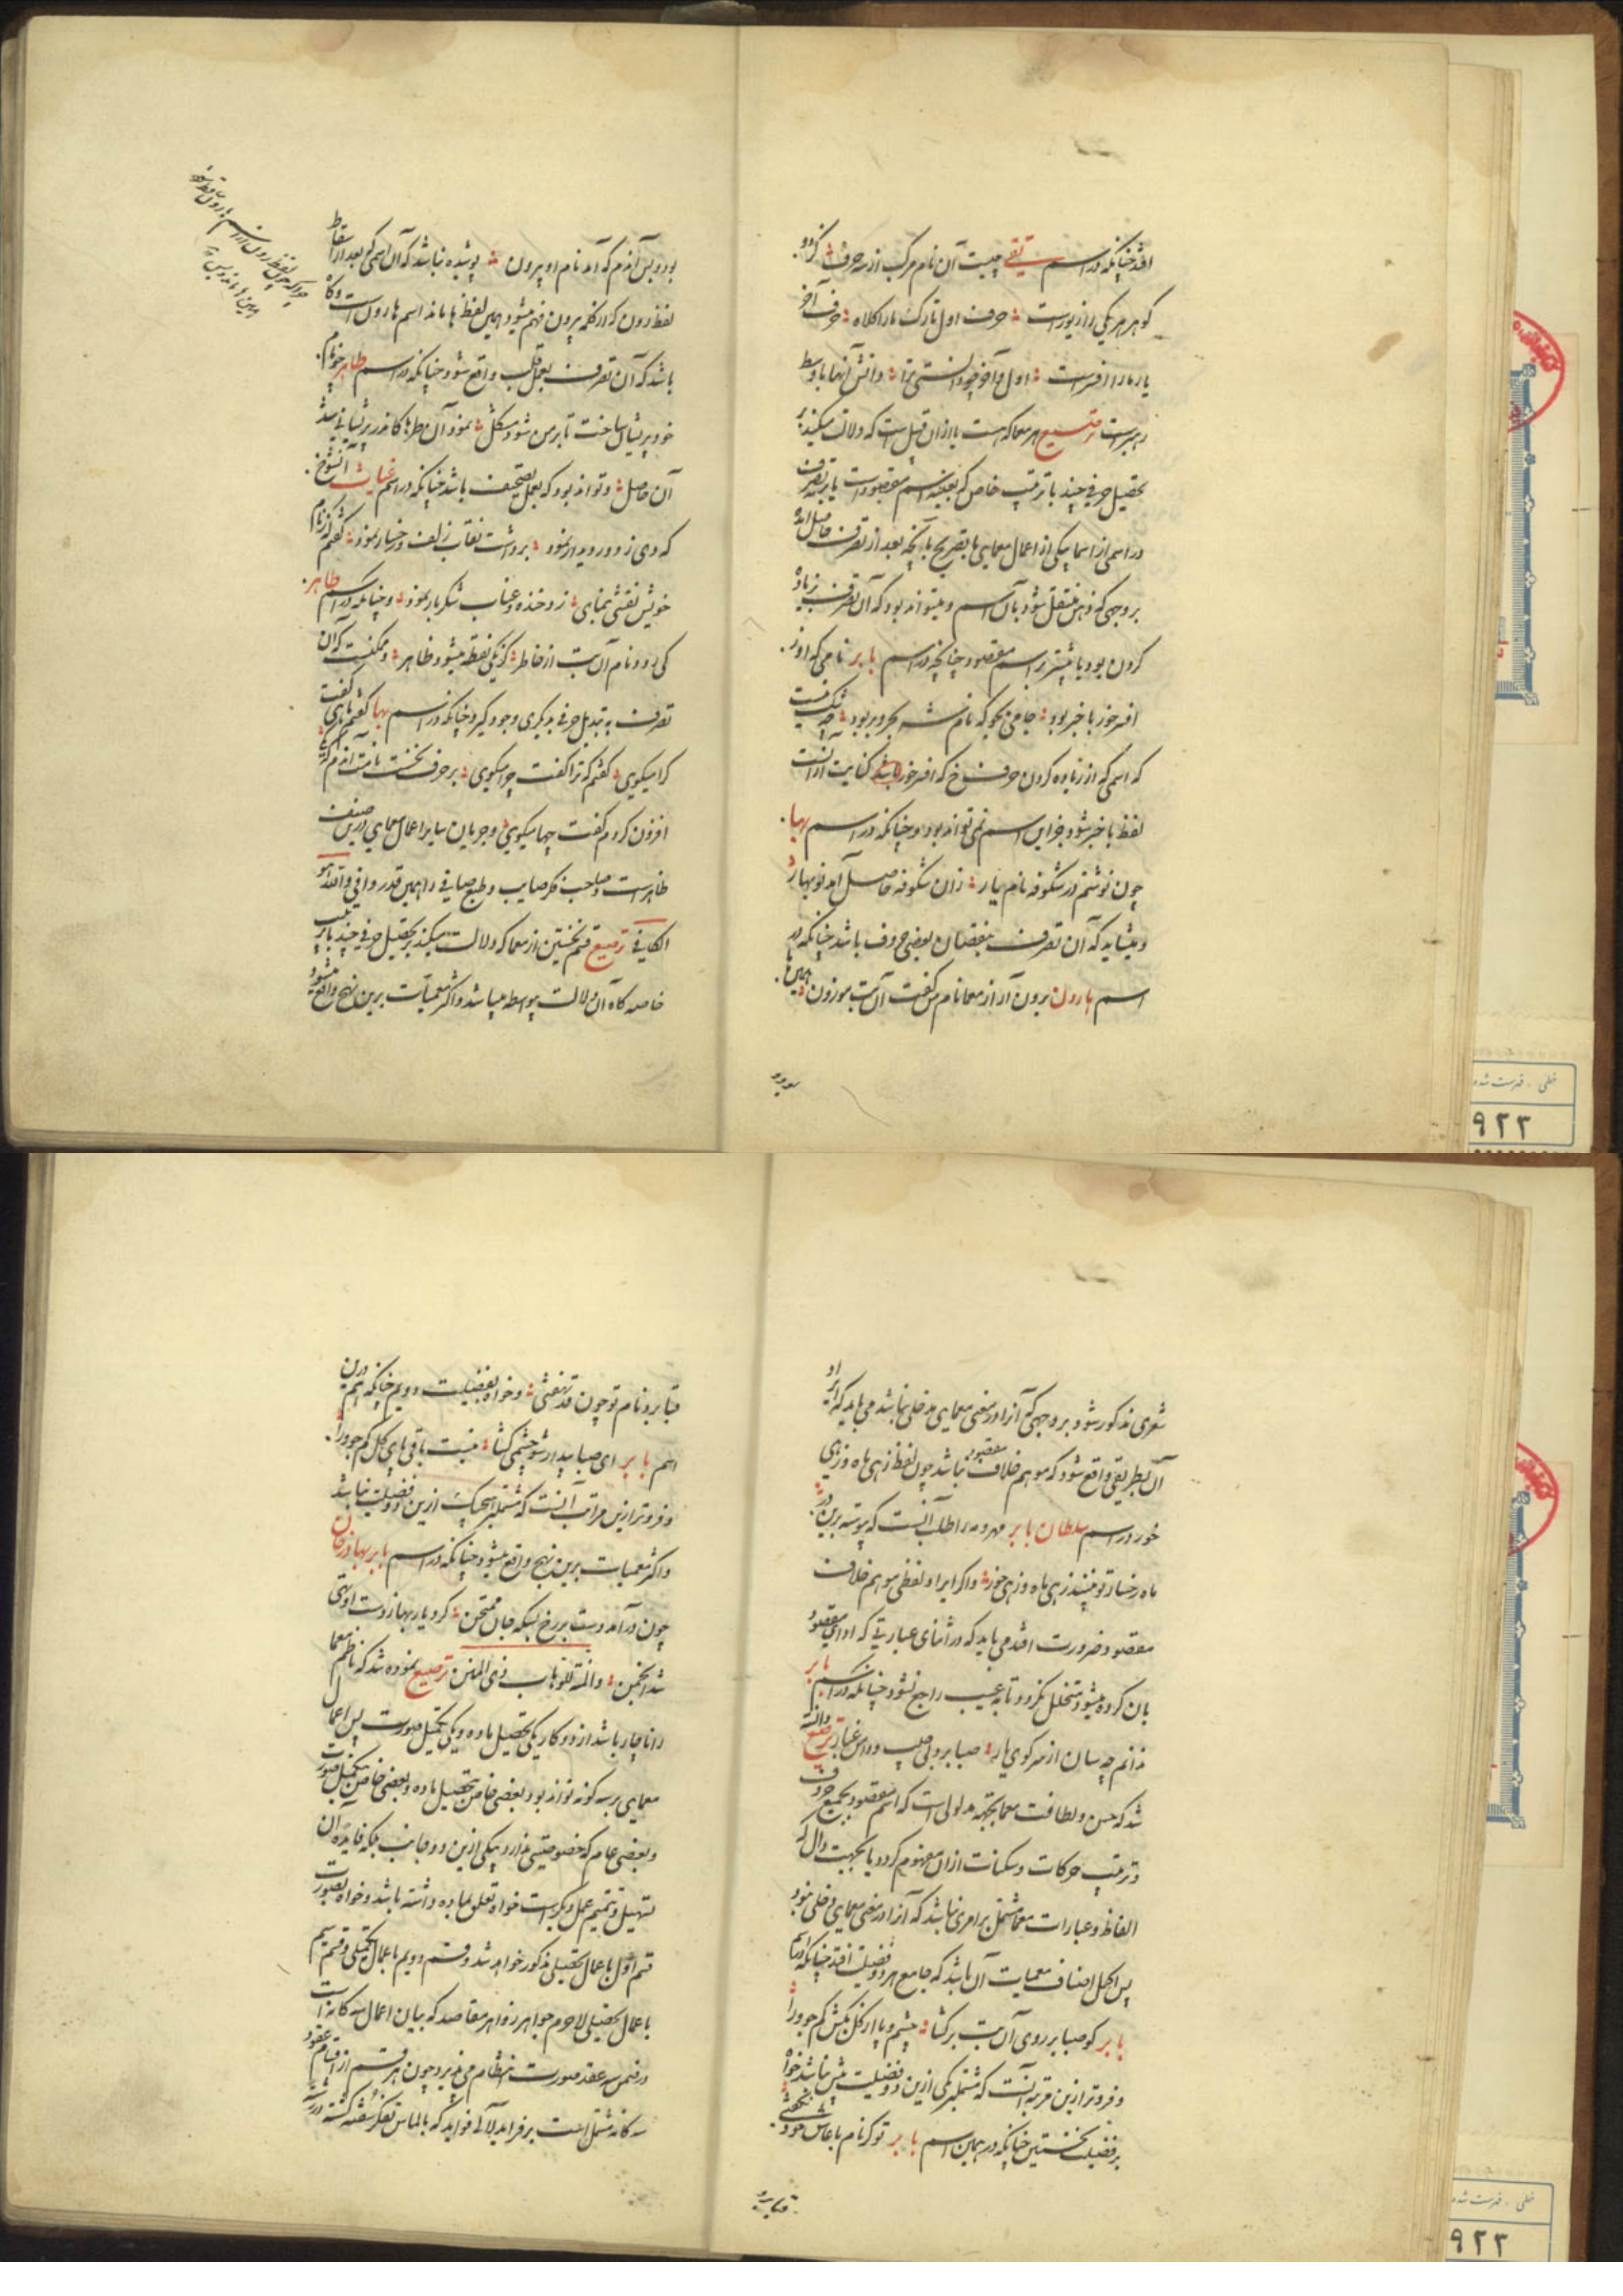 افتد چنانکه در اسم تقی چیست آن نام مرکب از سه حرف کزو
گوهر هر یکی را زیورست حرف اول تارک ما را کلاه حرف آخر
یار ما را افسرست اول و آخر چو دانستی ترا دانش آنها باوسط
رهبرست ترصیع هر معما که هست یا از آن قبیل است که دلالت میکند بر
تحصیل حرفی چند با ترتیب خاص که بعینه اسم مقصودست یا بر تصرف
در اسمی از اسما بیکی از اعمال معمایی با تصریح بآنچه بعد از تصرف حاصل آمده
بر وجهی که ذهن منتقل شود بآن اسم و میتواند بود که آن تصرف زیاده
کردن بود یا بیشتر بر اسم مقصود چنانچه در اسم بابر نامی که اوز
افسر خور با خبر بود جامی بجو که نام شه بحر و بر بود چه شک نیست
که اسمی که از زیاده کردن حرف خ که افسر خور باشد کنایت از آنست
لفظ باخبر شود جز این اسم نمی تواند بود و چنانکه در اسم بها
چون نوشتم در شکوفه نام یار زان شکوفه حاصل آمد نوبهار
و میشاید که آن تصرف بنقصان بعضی حروف باشد چنانکه در
اسم هارون برون آر از معما نام من گفت آن بت موزون همین ها
بود و بس آندم که آمد نام او بیرون پوشیده نباشد که آن اسمی که بعد از اسقاط
لفظ رون که از کلمه بیرون فهم میشود همین لفظ ها ماند اسم هارون است و گاه
باشد که آن تصرف بعمل قلب واقع شود چنانکه در اسم طاهر چو نام
خود پریشان ساخت تا بر من شود مشکل نمود آن طرها کاندر پریشانی شد
آن حاصل و تواند بود که بعمل تصحیف باشد چنانکه در اسم غیاث آن شوخ
که دی ز دور دیدار نمود برداشت نقاب زلف و رخسار نمود گفتم که ز نام
خویش نقشی بنمای زد خنده و عناب شکربار نمود و چنانکه در اسم طاهر
کی رود نام آن بت از خاطر کز یکی نقطه میشود ظاهر و ممکنست که آن
تصرف به تبدیل حرفی بدیگری وجود گیرد چنانکه در اسم بها گفتم
کرا میگوی گفتم که ترا گفت چرا میگوی بر حرف نخست نامت
افزون کردم گفت چها میگوی و جریان سایر اعمال معمایی درین صنف
ظاهرست و صاحب فکر صایب و طبع صافی را همین قدر وافی و الله هو
الکافی ترصیع قسم نخستین از معما که دلالت میکند بر تحصیل حرفی چند با ترتیب
خاصه گاه آن دلالت بیواسطه میباشد و اکثر معمیات برین نهج واقع میشود
شعری مذکور شود بر وجهی که آنرا در معنی معمایی مدخلی نباشد می باید که ایراد
آن بطریقی واقع شود که موهم خلاف مقصود نباشد چون لفظ زهی ماه و زهی
خور در اسم سلطان بابر مهر و مه را طلب آنست که پیوسته برین در
ماه رخسار تو بینند زهی ماه و زهی خور و اگر ایراد لفظی موهم خلاف
مقصود ضرورت افتد می باید که در اثنای عبارتی که ادای مقصود
بان کرده میشود متخلل نگردد تا به عیب راجع نشود چنانکه در اسم بابر
ندانم چه سان از سر کوی یار صبا بر ولی صیب وداس غبار ترصیع دانسته
شد که حسن و لطافت معما بجهه مدلولی است که اسم مقصود بجمیع حروف
و ترتیب حرکات و سکنات از ان مفهوم گردد یا بجهت دال که
الفاظ و عبارات معما مشتمل بر امری نباشد که آنرا در معنی معمایی دخلی نبود
پس اکمل اصناف معمیات آن باشد که جامع هر دو فضیلت افتد چنانکه در اسم
بابر کو صبا بر روی آن بت بر گشا چشم و پا از گل بکش کم جو ورا
و فروتر ازین مرتبه آنست که مشتمل بر یکی ازین دو فضیلت بیش نباشد خواه
بر فضیلت نخستین چنانکه در همین اسم بابر تو کز نام با عاس خود
قبا برد نام تو چون قد نهفتی و خواه بفضیلت دویم چنانکه هم درین
اسم بابر ای صبا بیدار شو چشمی گشا نیست باقی پای گل کم جو ورا
و فروتر ازین مراتب آنست که مشتمل بر هیچیک ازین دو فضیلت نباشد
و اکثر معمیات برین نهج واقع میشود چنانکه در اسم بابر بهادرخان
چون در آمد دست بر رخ بیکه جان ممتحن کرد یار بهاز دست او تهی
شد انجمن والمنة للوهاب ذی المنن ترصیع نموده شد که ناظم معما
را ناچار باشد از دو کار یکی تحصیل ماده و یکی تکمیل صورت پس اعمال
معمایی بر سه گونه تواند بود بعضی خاص بتحصیل ماده و بعضی خاص بتکمیل صورت
و بعضی عام که خصوصیتی ندارد بیکی ازین دو جانب بلکه فایده آن
تسهیل و تتمیم عمل دیگرست خواه تعلق بماده داشته باشد و خواه بصورت
قسم اول باعمال تحصیلی مذکور خواهد شد و قسم دویم باعمال تکمیلی و قسم سیم
باعمال تسهیلی لاجرم جواهر زواهر مقاصد که بیان اعمال سه گانه است
در ضمن سه عقد صورت انتظام می پذیرد و چون هر قسم از اقسام عقود
سه گانه مشتمل است بر فراید لآلی فواید که بالماس تفکر سفته گشته در رشته
خطی ـ فهرست شده
۹۲۳